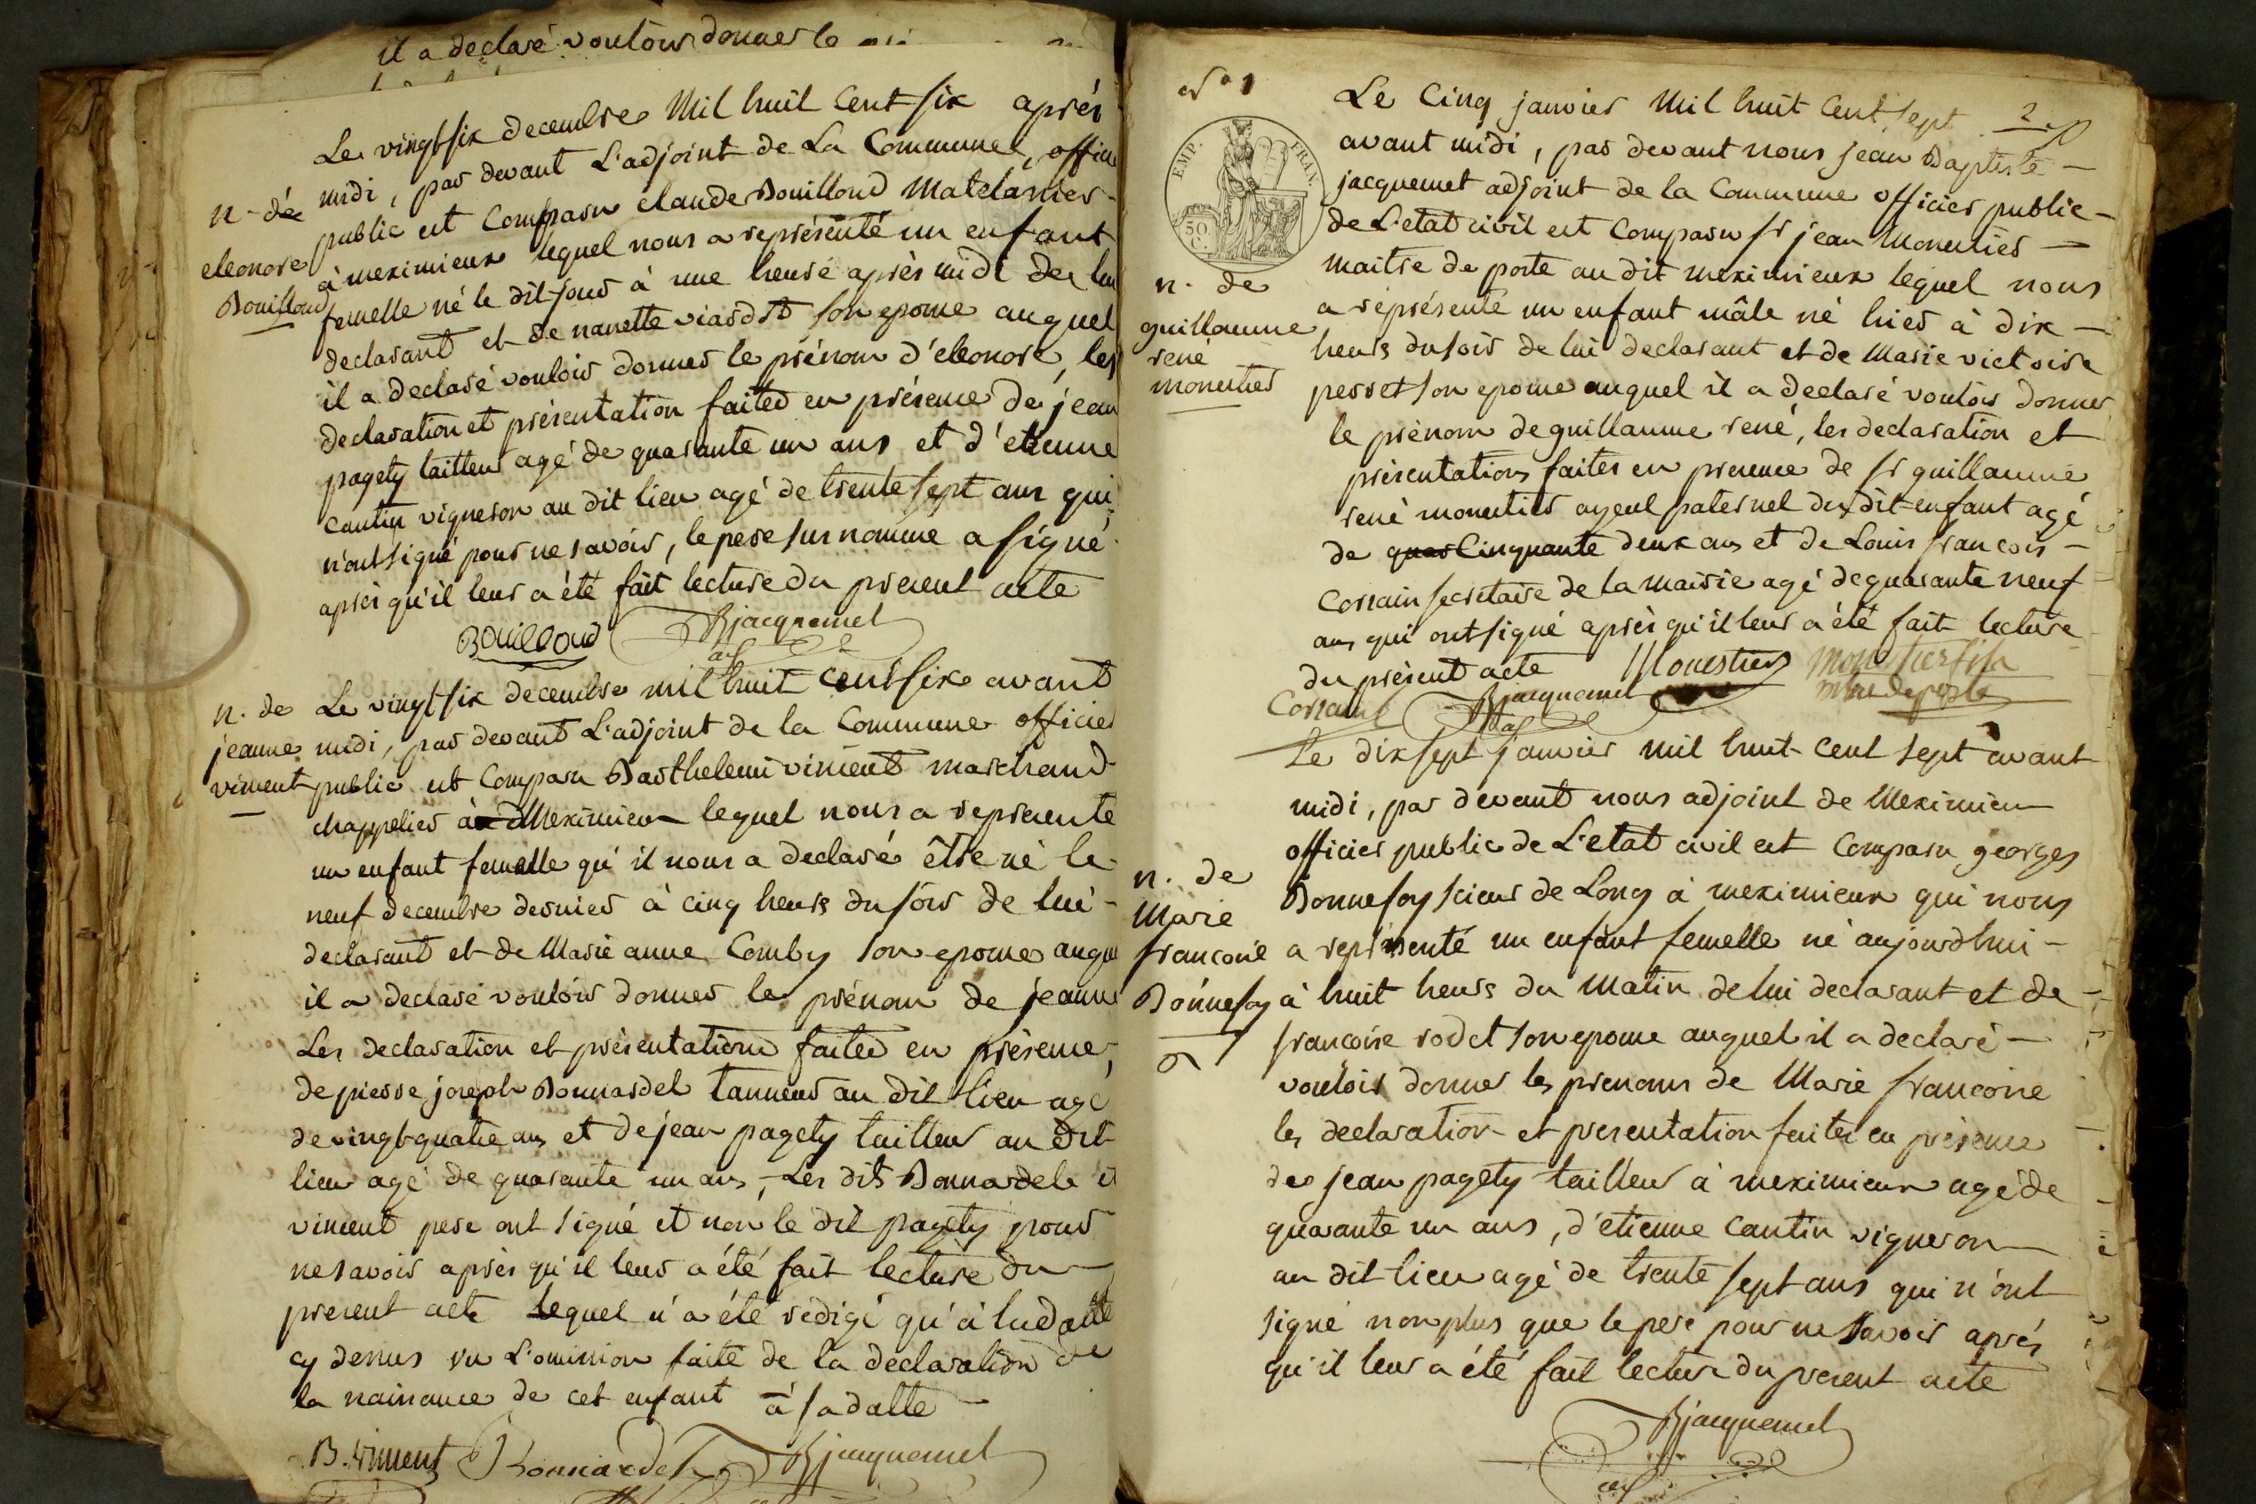 il a declaré vouloir donner le
Le vingt six decembre mil huit cent six après
midi, par devant L'adjoint de La Commune, officier
public est comparu claude Bouilloud Matelassier
à meximieux lequel nous a représenté un enfant
femelle né le dit jour à une heure après midi de lui
declarant et de nanette viardot son epouse auquel
il a declaré vouloir donner le prénom d'eleonore, les
declaration et présentation faites en présence de jean
pagety tailleur agé de quarante un ans et d'etienne
cantin vigneron au dit lieu agé de trente sept ans qui
n'ont signé pour ne savoir, le pere surnommé a signé
après qu'il leur a été fait lecture du present acte
n. de
eleonore
Bouilloud
Bouilloud Bjacquemet
adj
n. de
jeanne
vincent
Le vingt six decembre mil huit cent six avant
midi, par devant L'adjoint de la Commune officier
public est comparu Barthelemi vincent marchand
chappelier à Meximieux lequel nous a representé
un enfant femelle qu'il nous a declaré être né le
neuf decembre dernier à cinq heurs du soir de lui
declarant et de Marie anne Comby son epouse auquel
il a declaré vouloir donner le prénom de jeanne
Les declaration et présentation faites en présence,
de pierre joseph Bonnardel tanneur au dit lieu agé
de vingt quatre ans et de jean pagety tailleur au dit
lieu agé de quarante un ans, Les dits Bonnardel et
vincent pere ont signé et non le dit pagety pour
ne savoir après qu'il leur a été fait lecture du
present acte lequel n'a été rédigé qu'à la datte
cy dessus vu L'omission faite de la declaration de
la naissance de cet enfant à sa datte
B. vincent Bonnardel Bjacquemet
N° 1
2
EMP. FRAN.
50 C.
Le Cinq janvier mil huit cent sept
avant midi, par devant nous jean Baptiste
jacquemet adjoint de la Commune officier public
de L'etat civil est comparu sr jean Monestier
maitre de poste au dit meximieux lequel nous
a représenté un enfant mâle né hier à dix
heurs du soir de lui declarant et de Marie victoire
perret son epouse auquel il a declaré vouloir donner
le prénom de guillaume rené, les declaration et
présentation faites en presence de sr guillaume
rené monestier ayeul paternel du dit enfant agé
de quar Cinquante deux ans et de Louis françois
Corrain secrétaire de la mairie agé de quarante neuf
ans qui ont signé après qu'il leur a été fait lecture
du présent acte Monestier monestier fils
Corrain Bjacquemet mtre de poste
adj
n. de
guillaume
rené
monestier
Le dix sept janvier mil huit cent sept avant
midi, par devant nous adjoint de Meximieux
officier public de L'etat civil est comparu georges
Bonnefoy scieur de Long à meximieux qui nous
a représenté un enfant femelle né aujourdhui
à huit heurs du matin de lui declarant et de
françoise rodet son epouse auquel il a declaré
vouloir donner les prenoms de Marie françoise
les declaration et presentation faites en présence
de jean pagety tailleur à meximieux agé de
quarante un ans, d'etienne cantin vigneron
au dit lieu agé de trente sept ans qui n'ont
signé non plus que le pere pour ne savoir après
qu'il leur a été fait lecture du present acte
n. de
Marie
françoise
Bonnefoy
Bjacquemet
adj